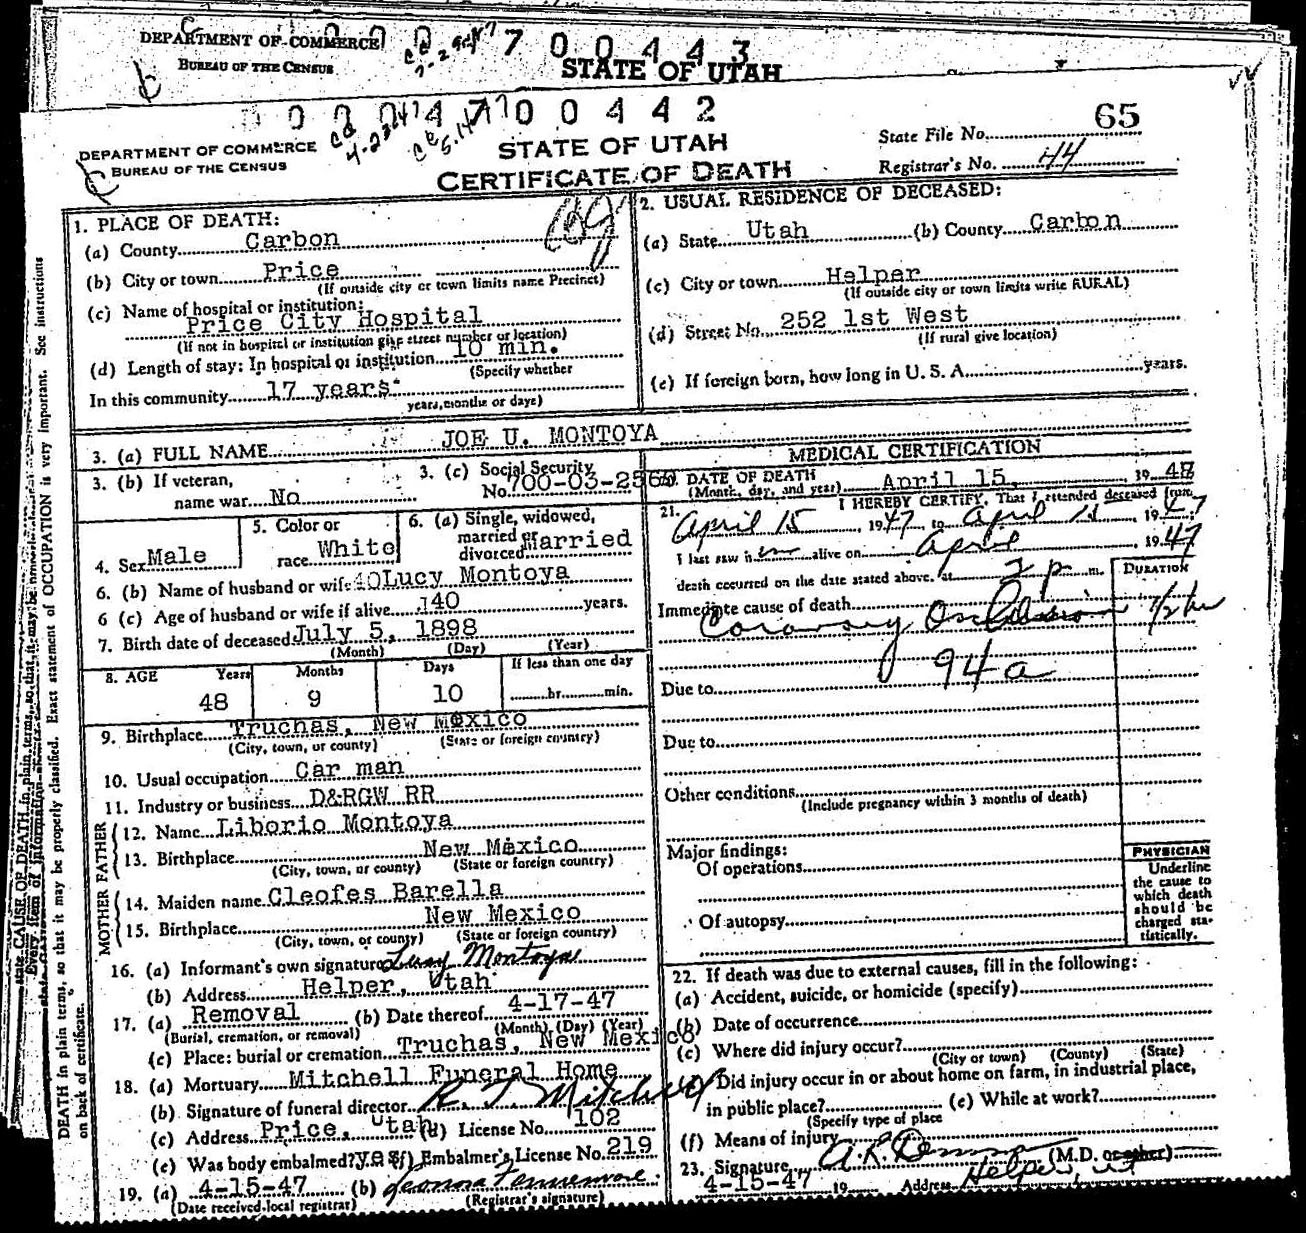 DEPARTMENT OF COMMERCE
BUREAU OF THE CENSUS
7 0 0 4 4 3
STATE OF UTAH
4 7 0 0 4 4 2
DEPARTMENT OF COMMERCE
BUREAU OF THE CENSUS
STATE OF UTAH
CERTIFICATE OF DEATH
State File No. 65
Registrar's No. 44
1. PLACE OF DEATH:
(a) County Carbon
(b) City or town Price
(If outside city or town limits name Precinct)
(c) Name of hospital or institution:
Price City Hospital
(If not in hospital or institution give street number or location)
(d) Length of stay: In hospital or institution 10 min.
(Specify whether
In this community 17 years
years, months or days)
2. USUAL RESIDENCE OF DECEASED:
(a) State Utah (b) County Carbon
(c) City or town Helper
(If outside city or town limits write RURAL)
(d) Street No. 252 1st West
(If rural give location)
(e) If foreign born, how long in U. S. A. years.
3. (a) FULL NAME JOE U. MONTOYA
3. (b) If veteran,
name war No
3. (c) Social Security
No. 700-03-2569
4. Sex Male
5. Color or
race White
6. (a) Single, widowed,
married or
divorced Married
6. (b) Name of husband or wife Lucy Montoya
6 (c) Age of husband or wife if alive 40 years.
7. Birth date of deceased July 5, 1898
(Month) (Day) (Year)
8. AGE Years Months Days If less than one day
48 9 10 hr. min.
9. Birthplace Truchas, New Mexico
(City, town, or county) (State or foreign country)
10. Usual occupation Car man
11. Industry or business D&RGW RR
FATHER
12. Name Liborio Montoya
13. Birthplace New Mexico
(City, town, or county) (State or foreign country)
MOTHER
14. Maiden name Cleofes Barella
15. Birthplace New Mexico
(City, town, or county) (State or foreign country)
16. (a) Informant's own signature Lucy Montoya
(b) Address Helper, Utah
17. (a) Removal (b) Date thereof 4-17-47
(Burial, cremation, or removal) (Month) (Day) (Year)
(c) Place: burial or cremation Truchas, New Mexico
18. (a) Mortuary Mitchell Funeral Home
(b) Signature of funeral director R. T. Mitchell
(c) Address Price, Utah (d) License No. 102
(e) Was body embalmed? yes (f) Embalmer's License No. 219
19. (a) 4-15-47 (b) Leonna Fennemore
(Date received local registrar) (Registrar's signature)
MEDICAL CERTIFICATION
20. DATE OF DEATH
(Month, day, and year) April 15, 19 47
21. I HEREBY CERTIFY, That I attended deceased from
April 15 19 47 to April 15 19 47
I last saw h im alive on April 19 47
death occurred on the date stated above, at 2 p m.
DURATION
Immediate cause of death
Coronary Occlusion 1/2 hr
94a
Due to
Due to
Other conditions
(Include pregnancy within 3 months of death)
Major findings:
Of operations
Of autopsy
PHYSICIAN
Underline
the cause to
which death
should be
charged sta-
tistically.
22. If death was due to external causes, fill in the following:
(a) Accident, suicide, or homicide (specify)
(b) Date of occurrence
(c) Where did injury occur?
(City or town) (County) (State)
Did injury occur in or about home on farm, in industrial place,
in public place? (e) While at work?
(Specify type of place
(f) Means of injury
23. Signature A.R. (M.D. or other)
4-15-47 19 Address Helper, Ut
DEATH in plain terms, so that it may be properly classified. Exact statement of OCCUPATION is very important. See instructions
on back of certificate.